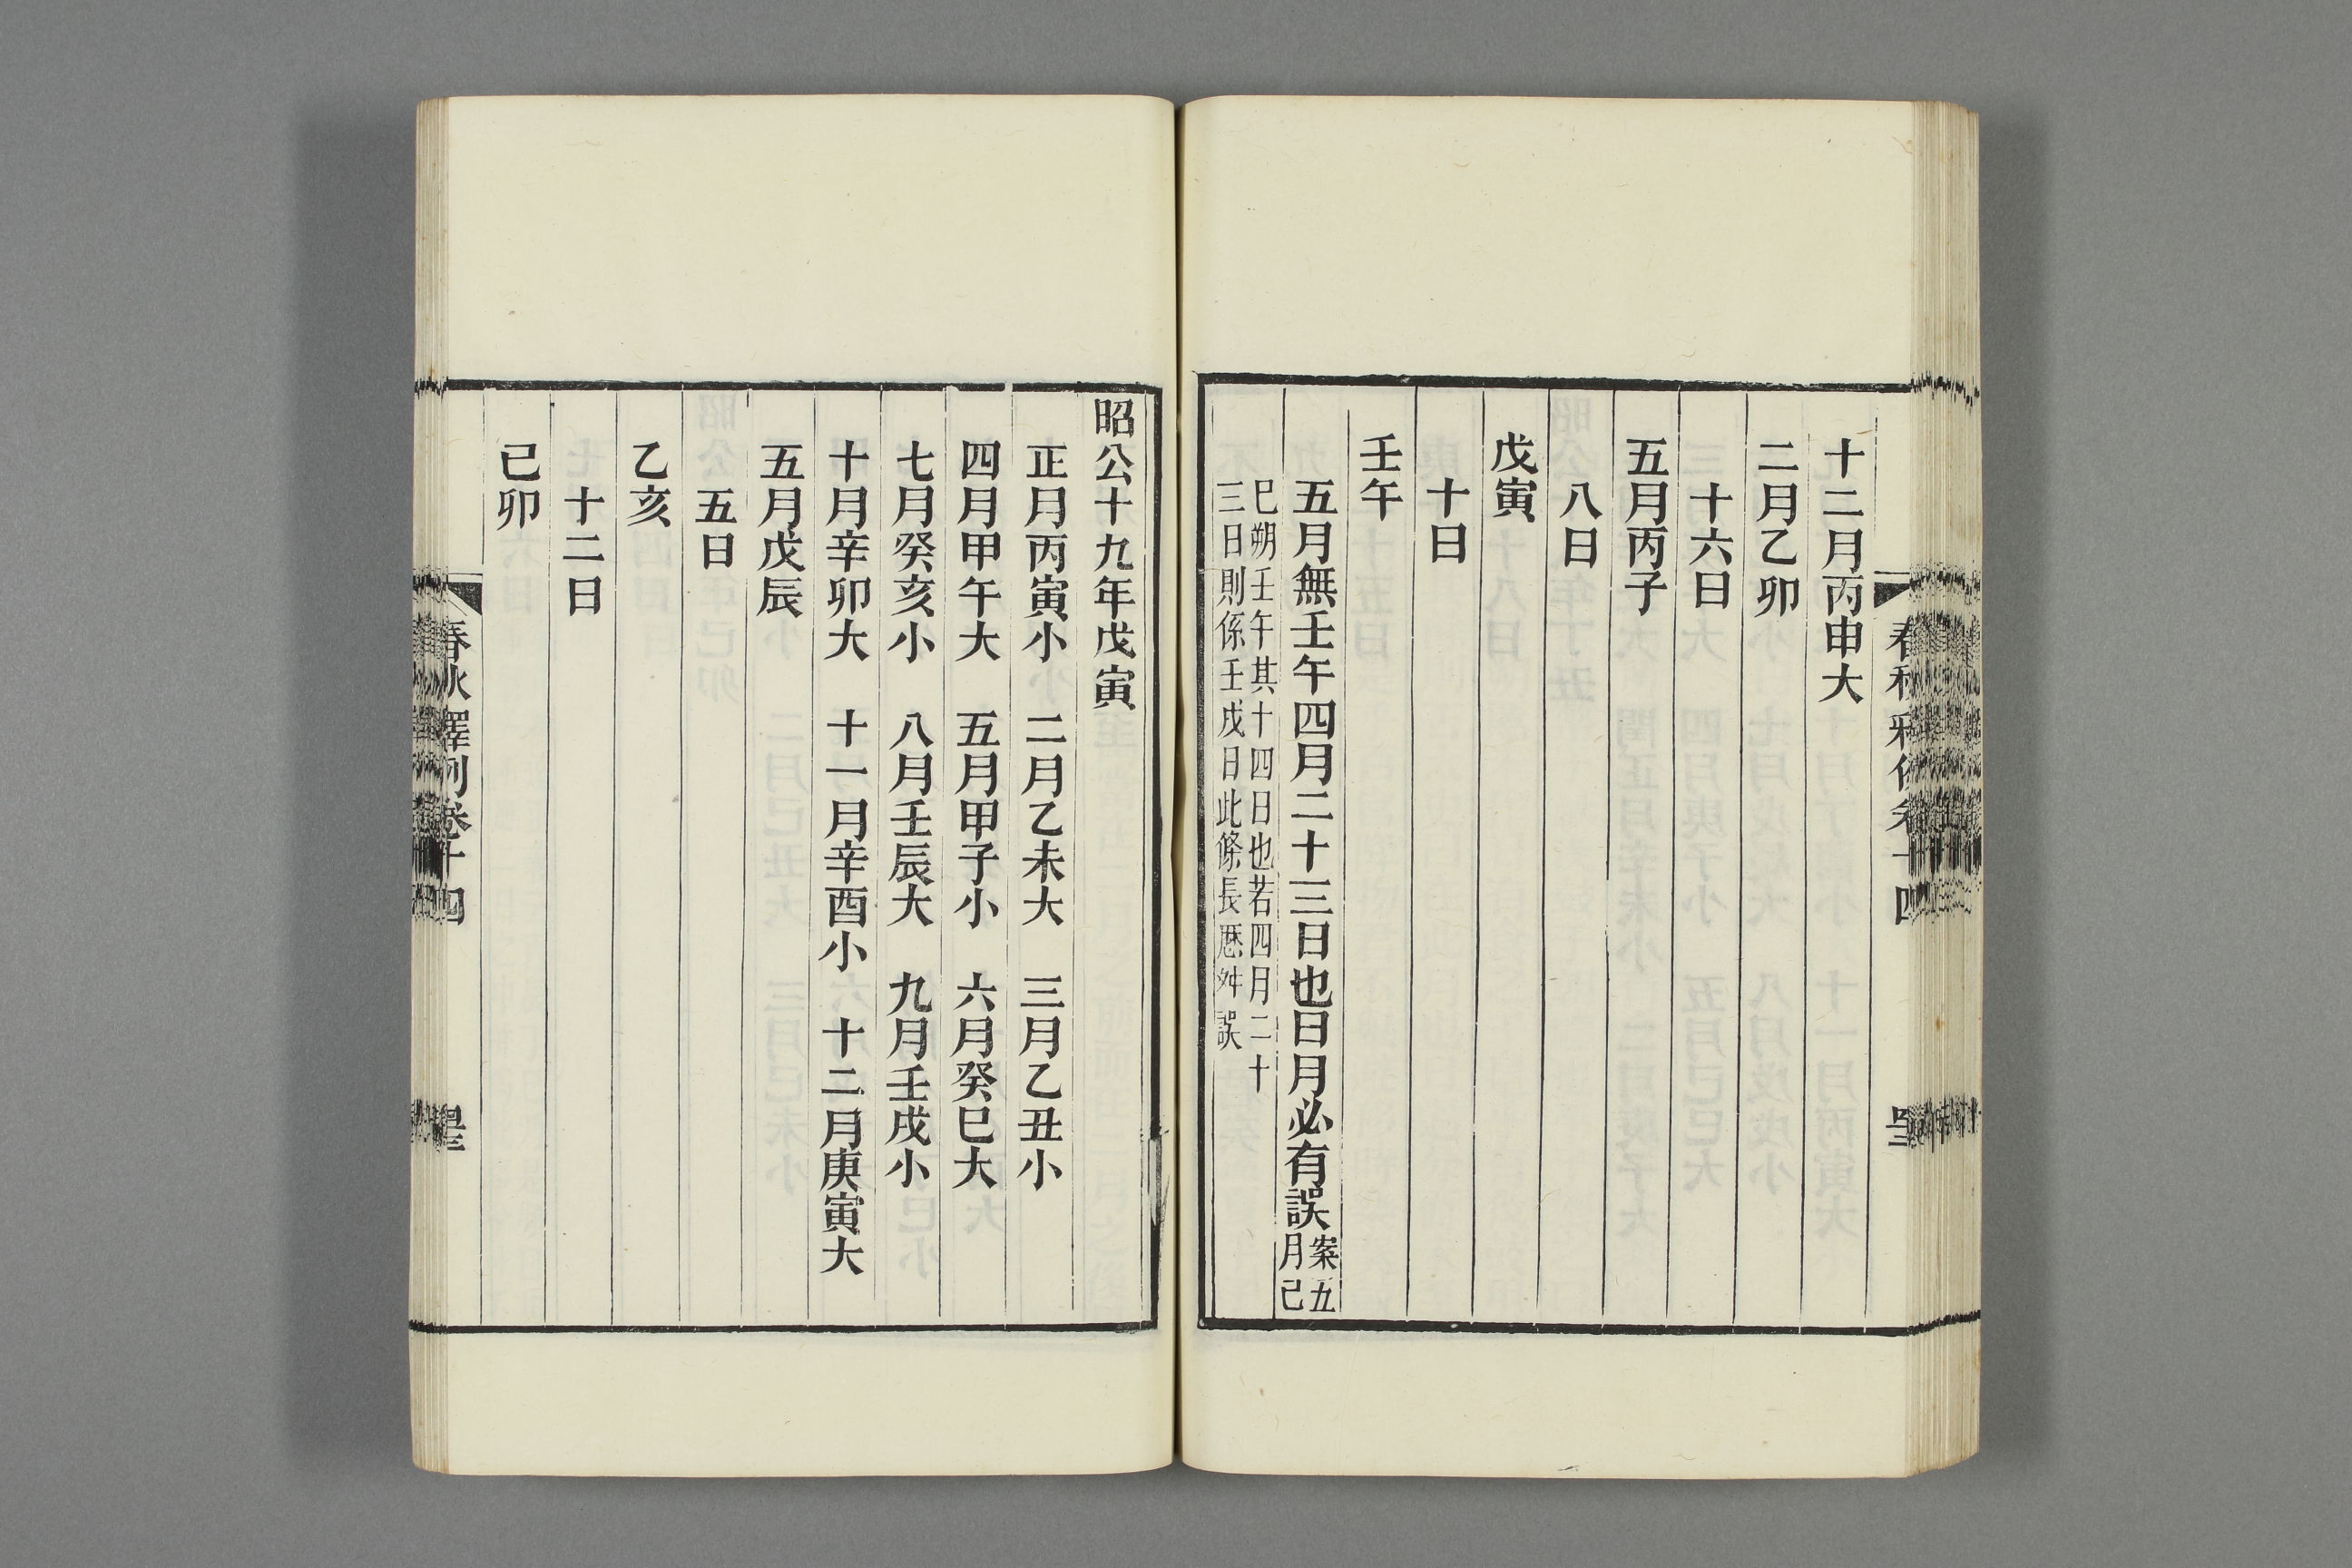 十二月丙申大
二月乙卯
十六日
五月丙子
八日
戊寅
十日
壬午
五月無壬午四月二十三日也日月必有誤案五
月己
巳朔壬午其十四日也若四月二十
三日則係壬戌日此條長厯舛誤
昭公十九年戊寅
正月丙寅小 二月乙未大 三月乙丑小
四月甲午大 五月甲子小 六月癸巳大
七月癸亥小 八月壬辰大 九月壬戌小
十月辛卯大 十一月辛酉小 十二月庚寅大
五月戊辰
五日
乙亥
十二日
己卯
春秋釋例卷十四